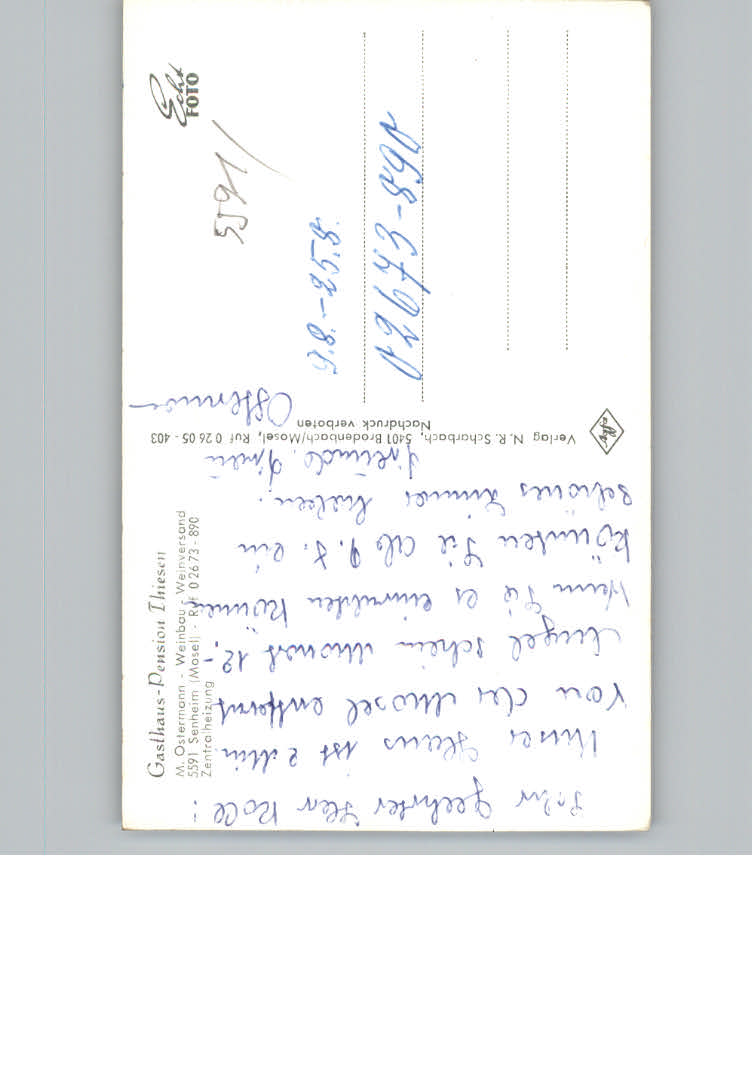 Gasthaus-Pension Thiesen
M. Ostermann - Weinbau - Weinversand
5591 Senheim (Mosel) - Ruf 0 26 73 - 890
Zentralheizung
Sehr geehrter Herr Koll!
Unser Haus ist 2 Min
von der Mosel entfernt
Angel schein Monat 12,-
Wenn Sie es einrichten können
könnten Sie ab 9. 8. ein
schönes Zimmer haben.
Freundl.
Ostermann
Verlag N. R. Scharbach, 5401 Brodenbach/Mosel, Ruf 0 26 05 - 403
Nachdruck verboten
Echt
FOTO
5591/
9.8.-25.8.
02673-890